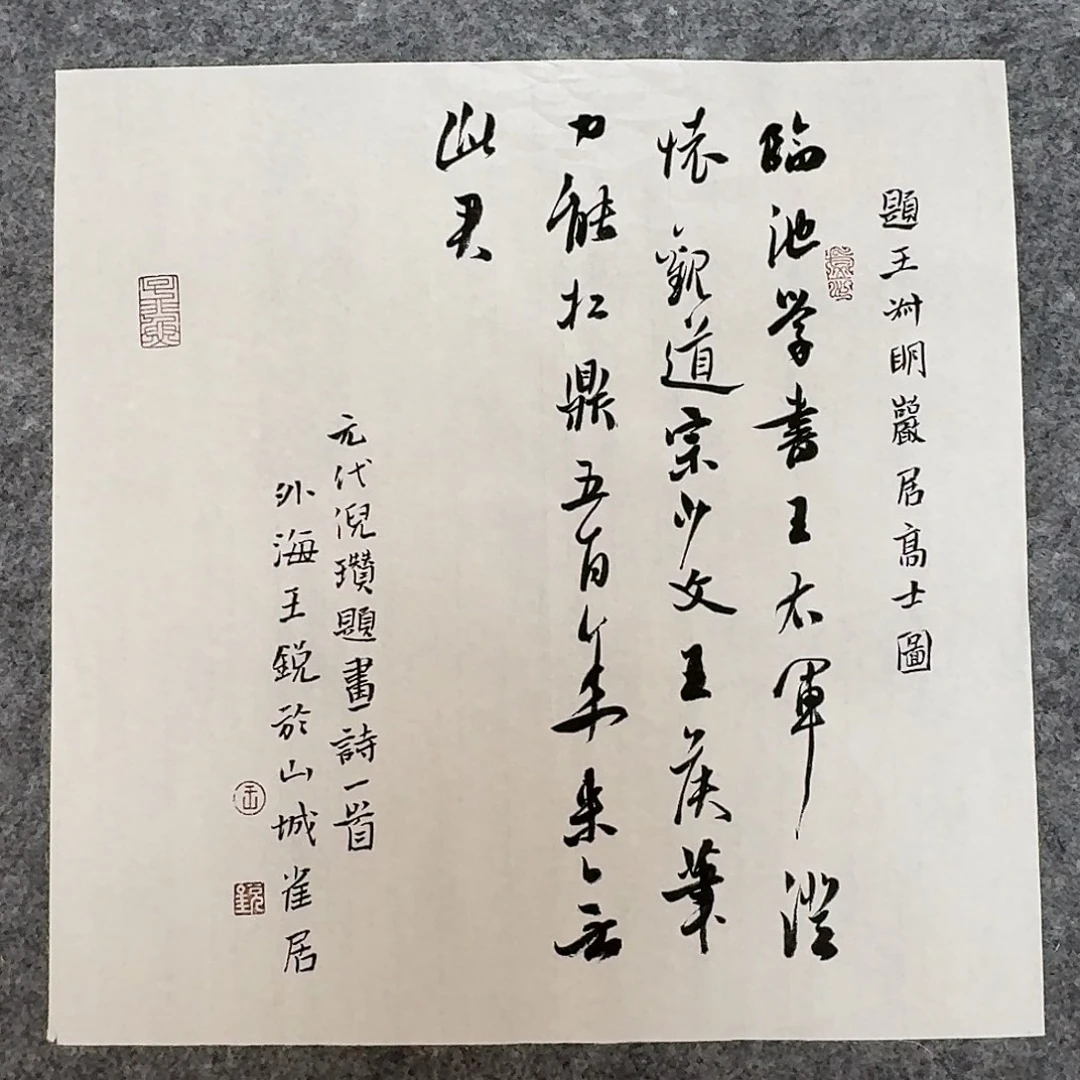 題王叔明巖居高士圖
臨池学書王右軍澄
懷觀道宗少文王侯筆
力能扛鼎五百年來無
此君
元代倪瓚題畫詩一首
外海王銳於山城雀居
王
銳